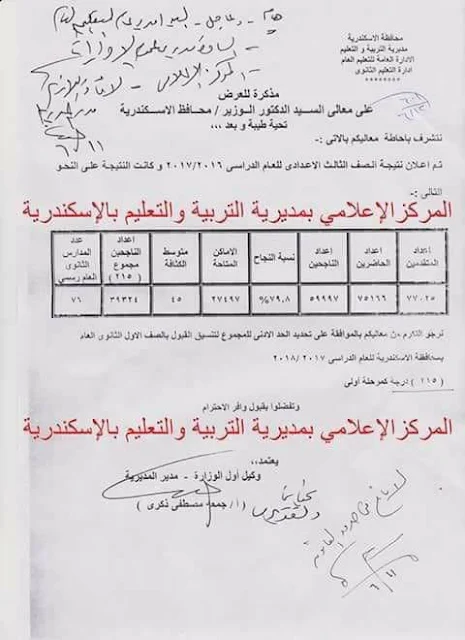 محافظة الاسكندرية
مديرية التربية و التعليم
الادارة العامة للتعليم العام
ادارة التعليم الثانوى
********
مذكرة للعرض
على معالى السيد الدكتور الوزير / محافظ الاسكندرية
تحية طيبة و بعد ,,,
نتشرف باحاطة معاليكم بالاتى :-
تم اعلان نتيجة الصف الثالث الاعدادى للعام الدراسى ٢٠١٧/٢٠١٦ و كانت النتيجة على النحو
التالى :-
المركز الإعلامي بمديرية التربية والتعليم بالإسكندرية
اعداد المتقدمين | اعداد الحاضرين | اعداد الناجحين | نسبة النجاح | الاماكن المتاحة | متوسط الكثافة | اعداد الناجحين مجموع (٢١٥) | عدد المدارس الثانوى العام رسمي
٧٧٠٢٥ | ٧٥١٦٦ | ٥٩٩٩٧ | ٧٩,٨% | ٢٧٤٩٧ | ٤٥ | ٣٩٣٢٤ | ٧٦
نرجو التكرم من معاليكم بالموافقة على تحديد الحد الادنى للمجموع لتنسيق القبول بالصف الاول الثانوى العام
بمحافظة الاسكندرية للعام الدراسى ٢٠١٧ / ٢٠١٨
( ٢١٥ ) درجة كمرحلة أولى
وتفضلوا بقبول وافر الاحترام
المركز الإعلامي بمديرية التربية والتعليم بالإسكندرية
يعتمد,,
وكيل أول الوزارة - مدير المديرية
( أ / جمعه مصطفى ذكرى )